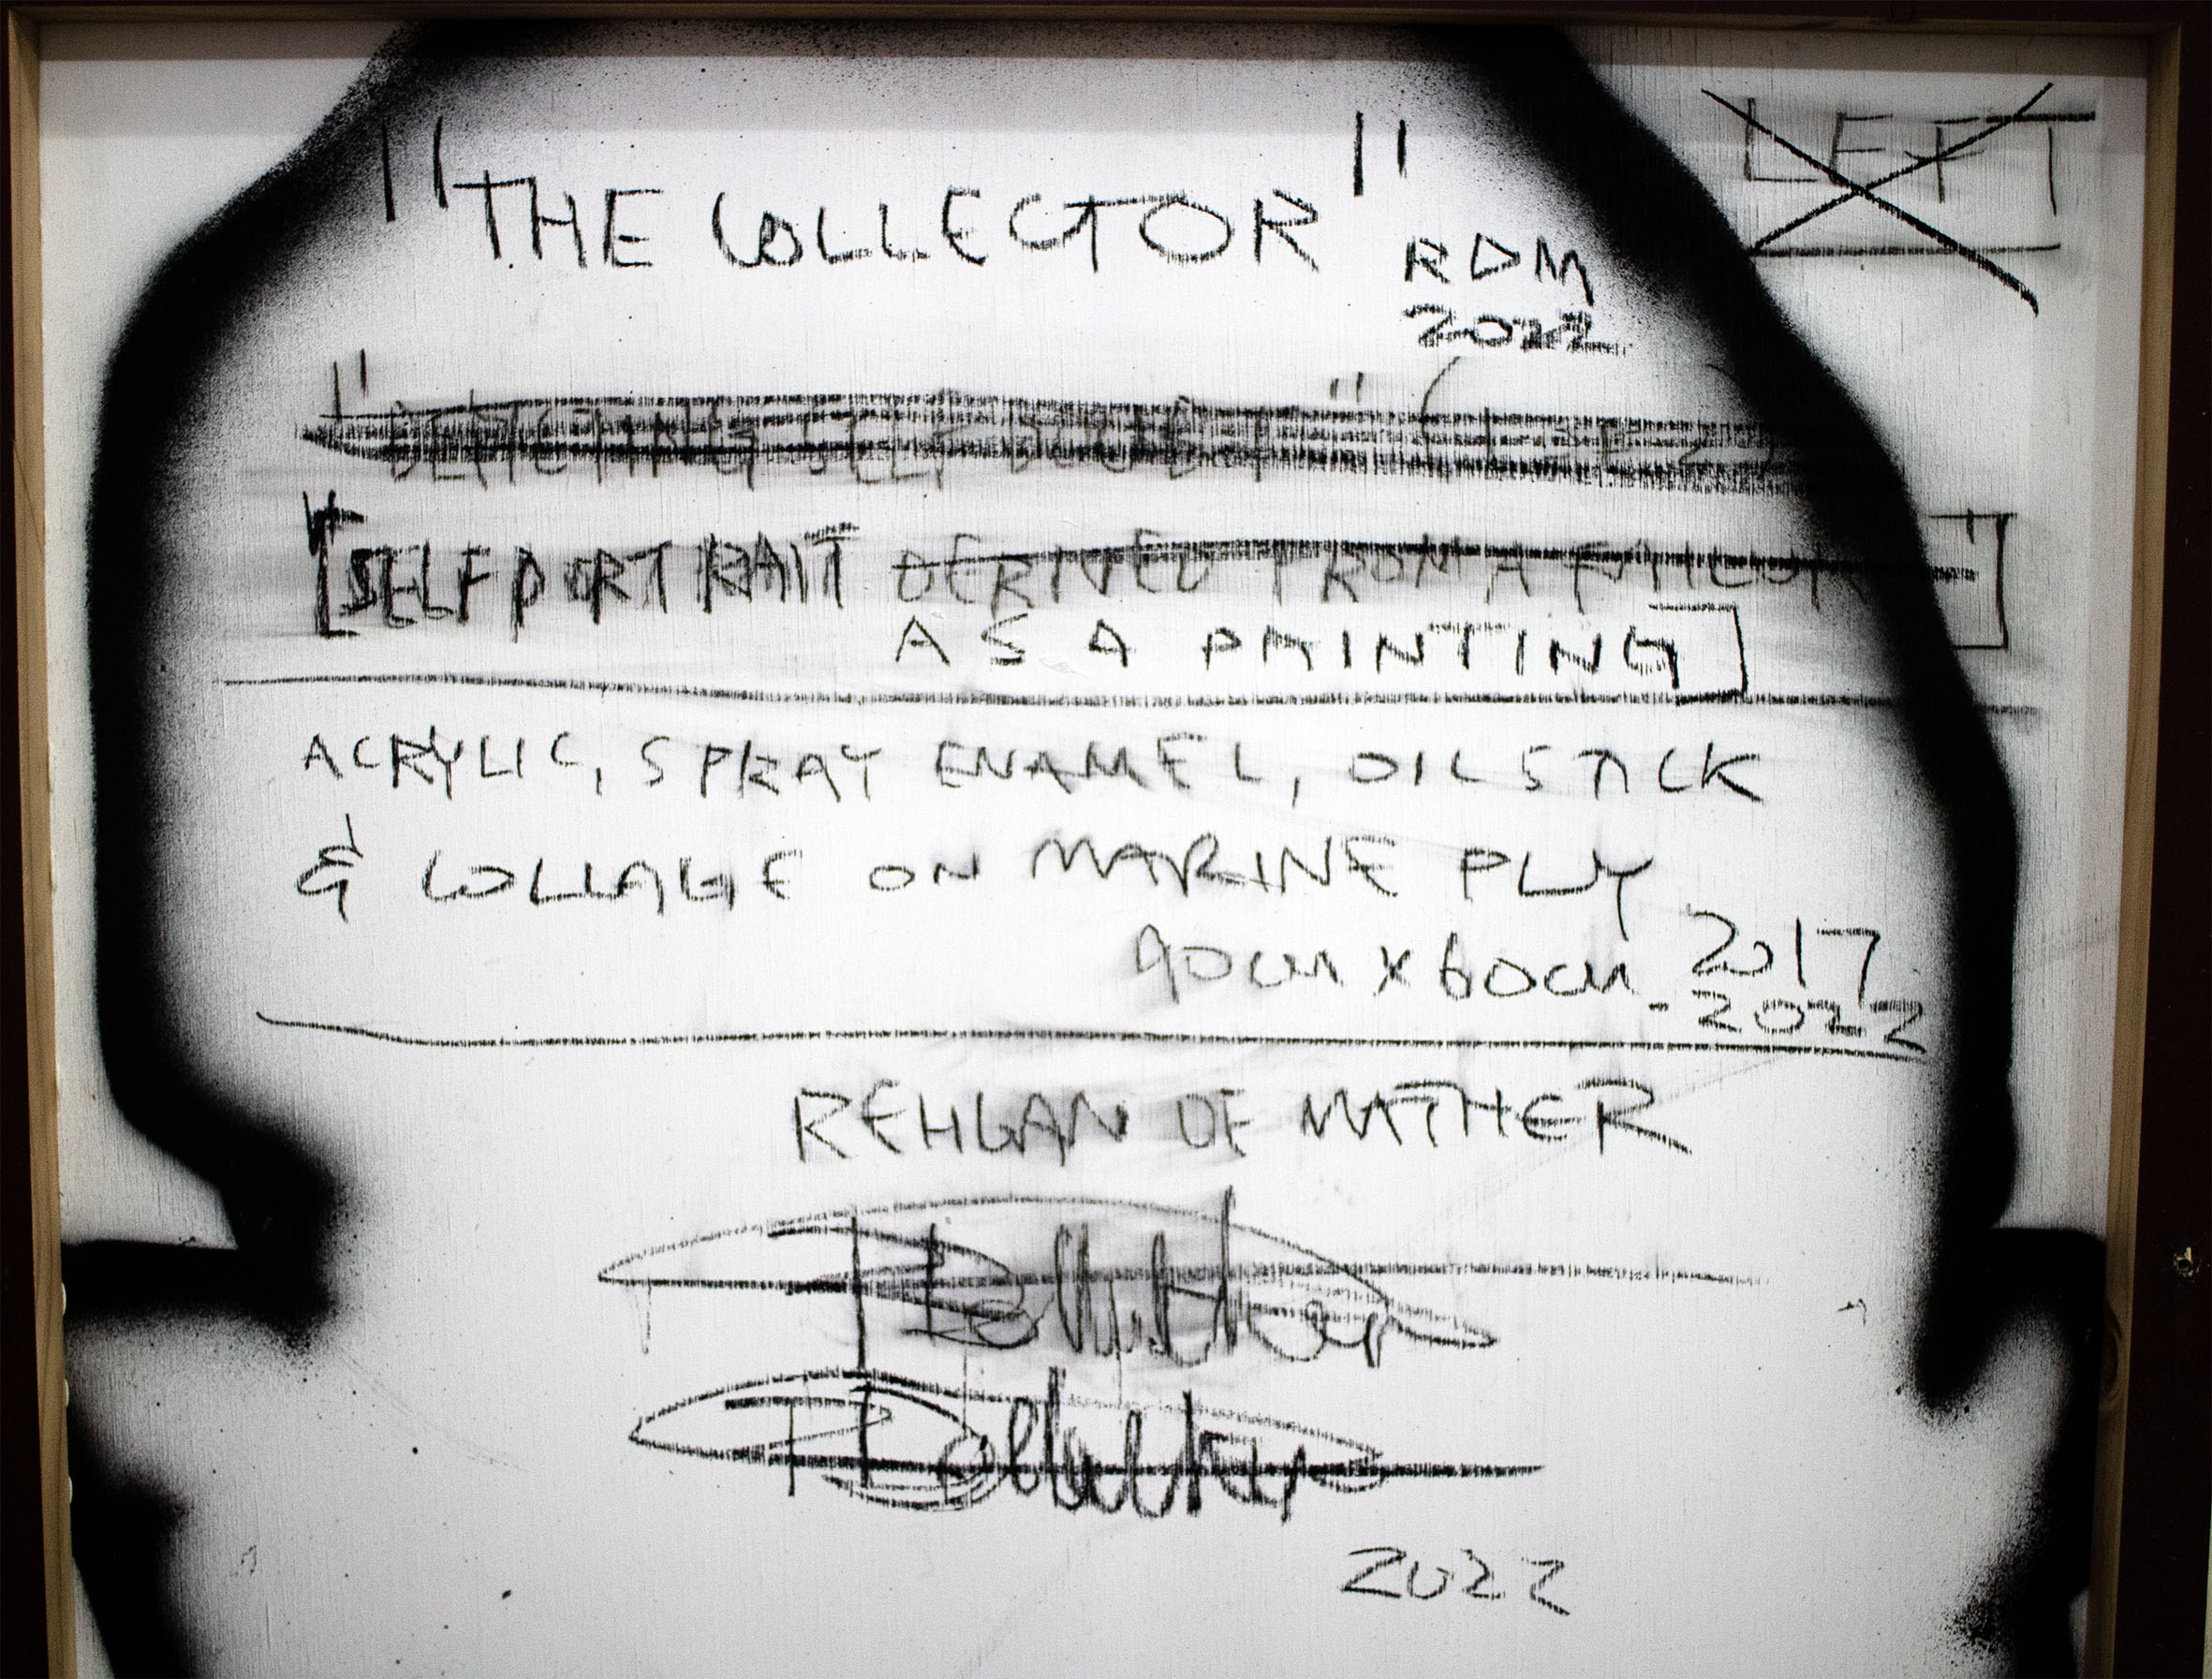 LEFT
"THE COLLECTOR"
RDM
2022
[SELF PORTRAIT DERIVED FROM A
AS A PAINTING]
ACRYLIC, SPRAY ENAMEL, OIL STICK
& COLLAGE ON MARINE PLY
90cm x 60cm 2017
-2022
REHGAN DE MATHER
2022